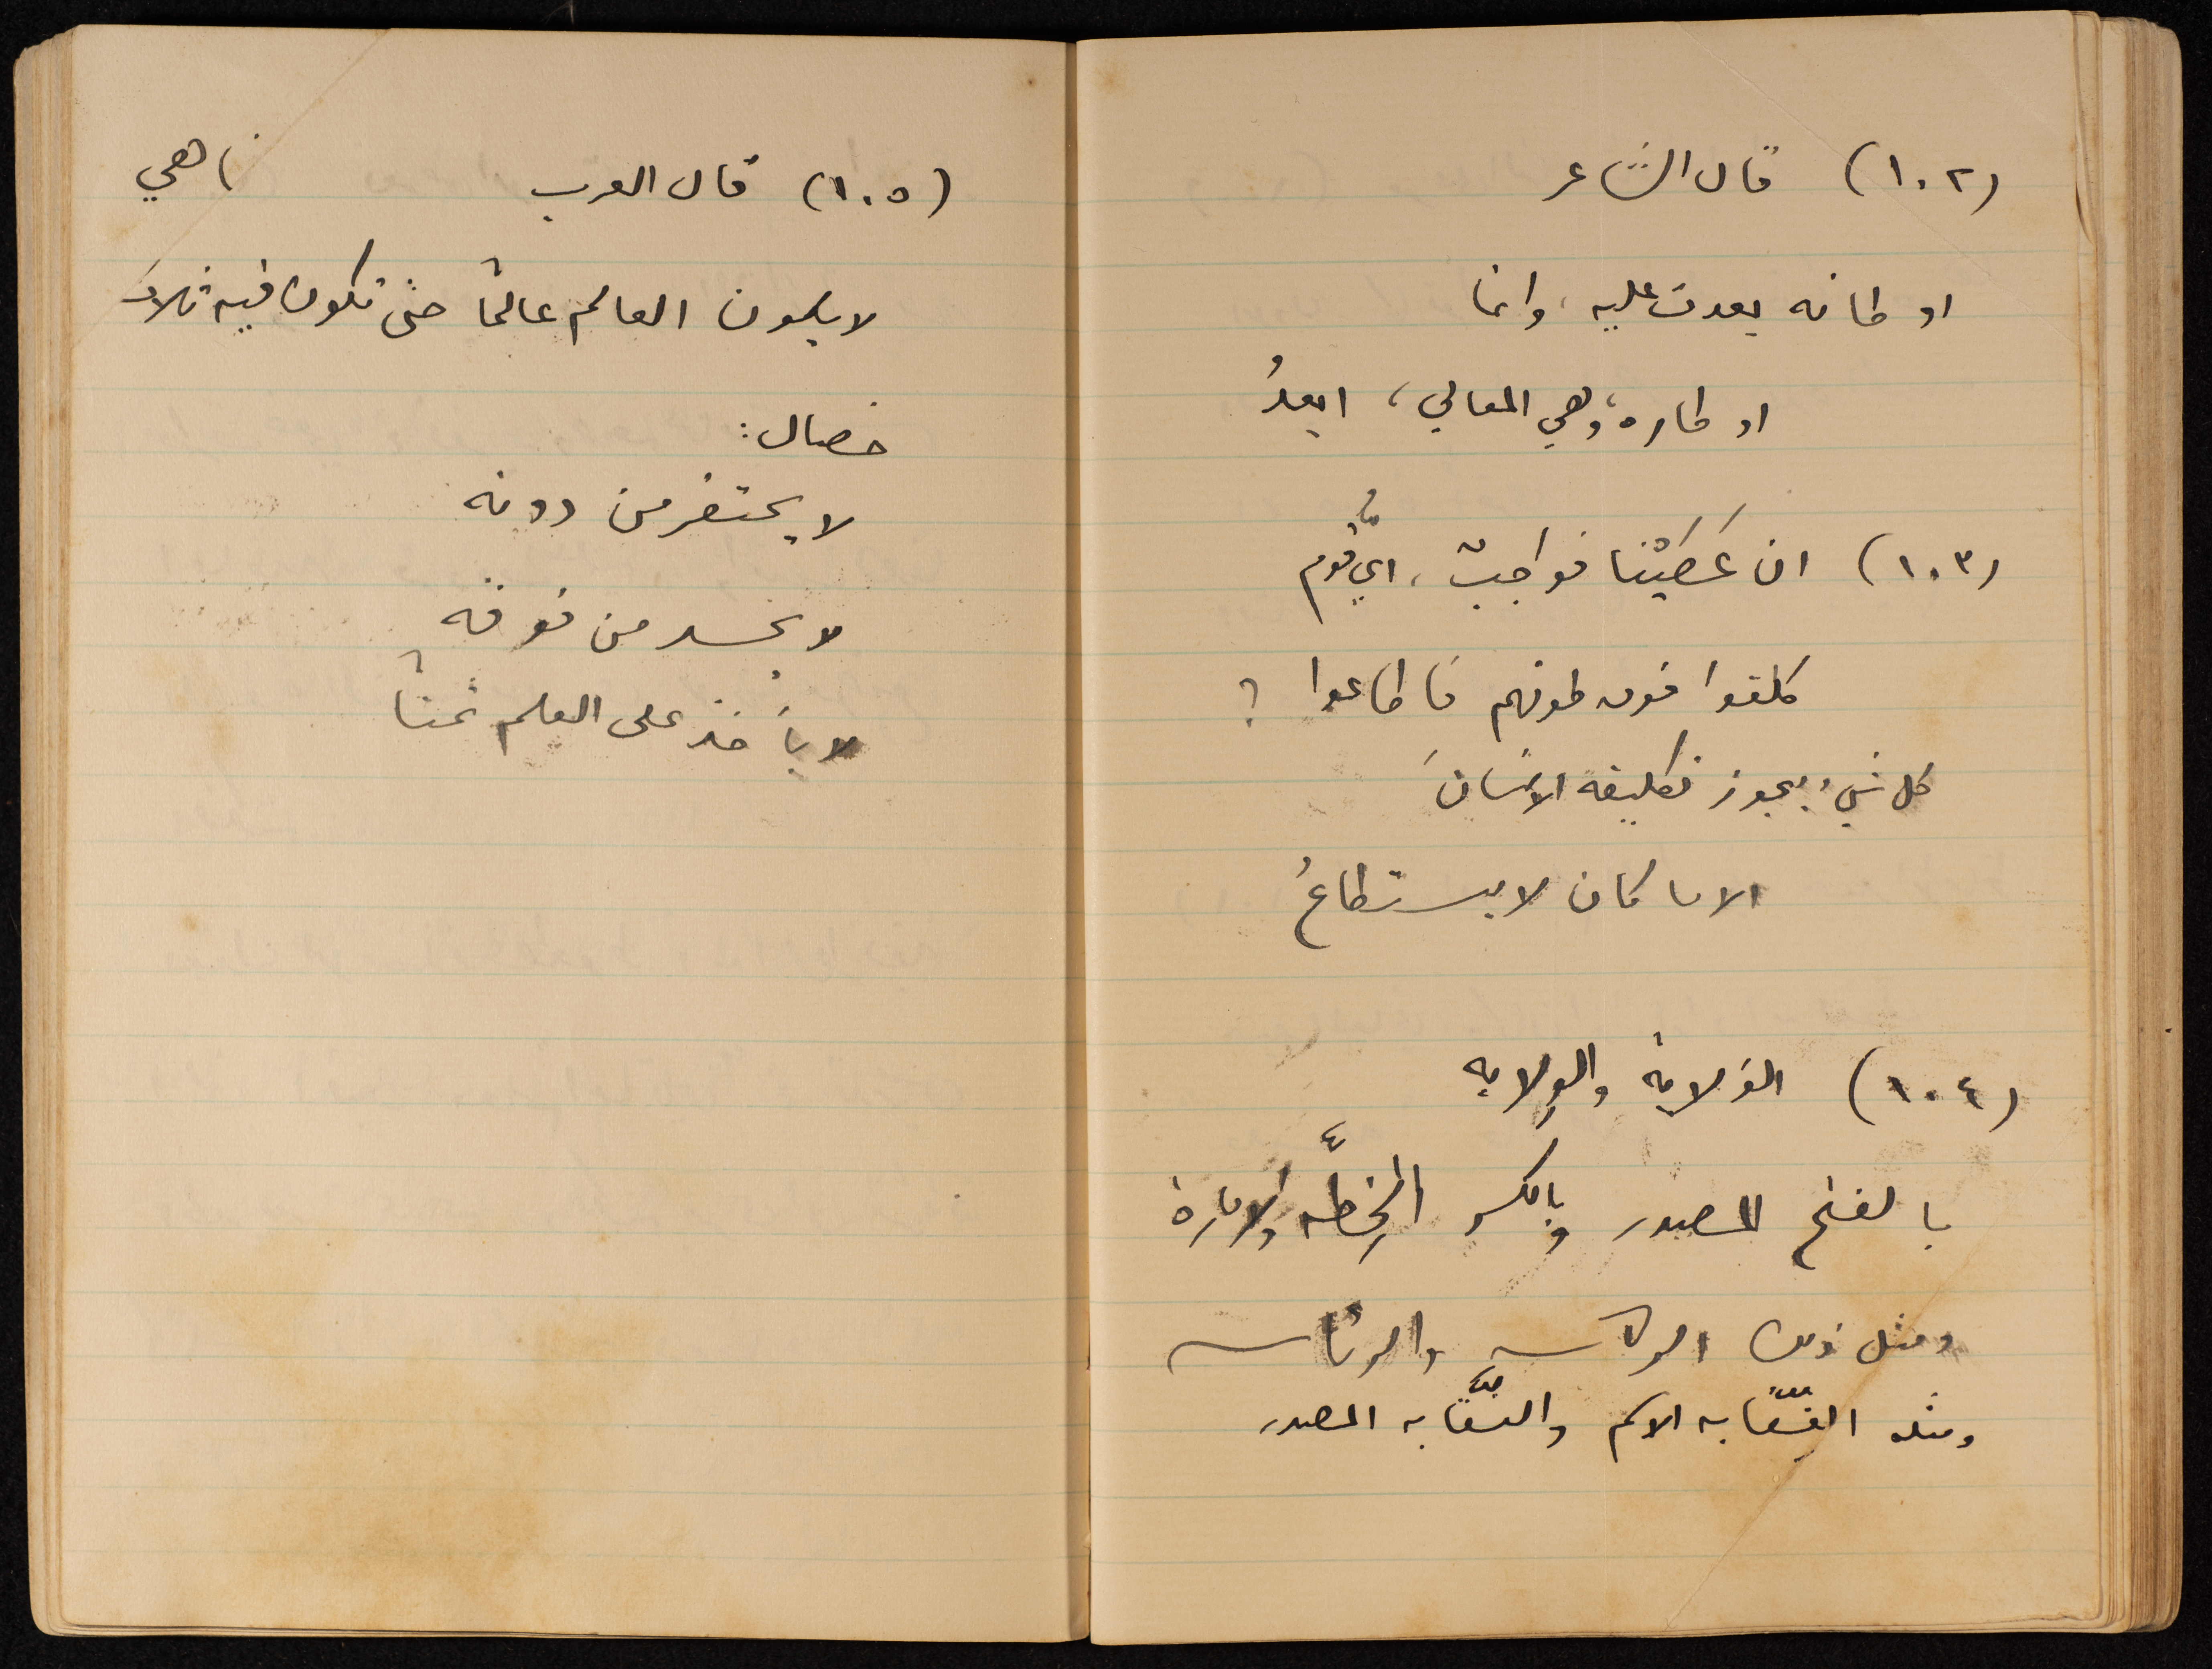 (١٠٢) قال الشاعر
اوطانه بعدت عليه، وانما
اوطاره، وهي المعالي، ابعدُ
(١٠٣) ان عَصَيْنا فواجبٌ، ايُّ قومٍ
كلفوا فوق طوقهم فاطاعوا ؟
كل شيءٍ يجوز تكليفه الانسانَ
الا ما كان لا يستطاعُ
(١٠٤) الوَلاية والوِلاية
بالفتح المصدر وبالكسر الخِطّة والامارة
ومثل ذلك الوكاسه والرئاسه
ومثله النِقابه الاسم والنَقابه المصدر
(١٠٥) قال العرب ناهي
لا يكون العالم عالماً حتى تكون فيه ثلاث
خصال:
لا يحتقر من دونه
لا يحسد من فوقه
لا يأخذ على العلم ثمناً